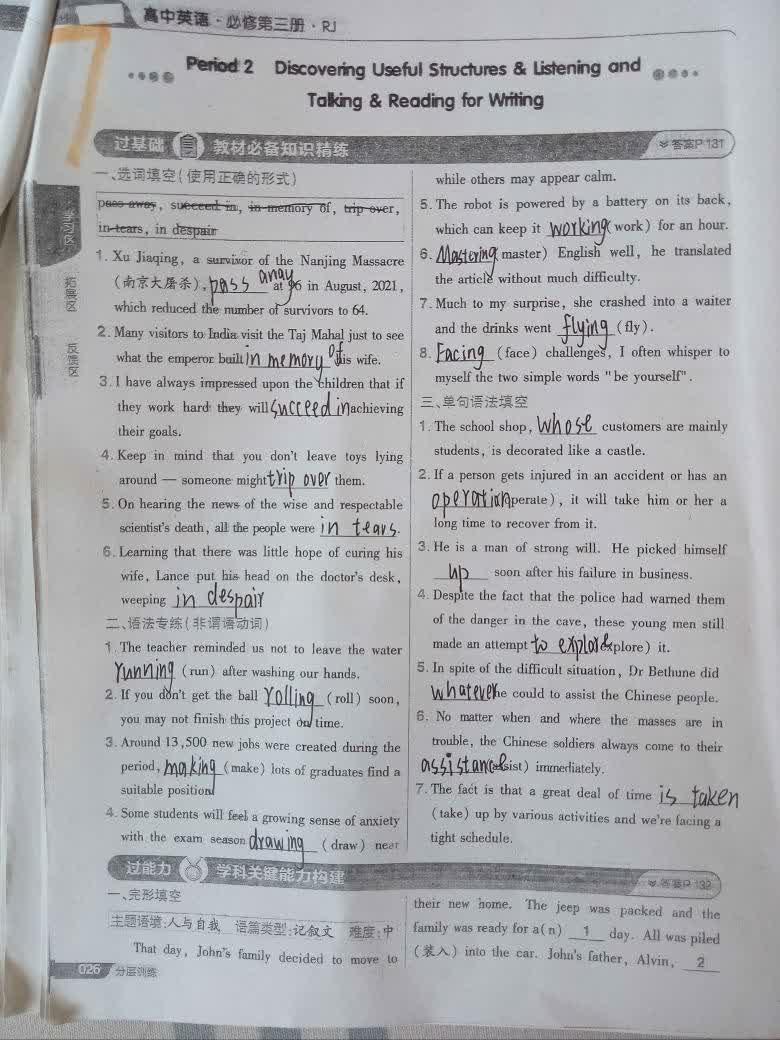 高中英语·必修第三册·RJ
Period 2 Discovering Useful Structures & Listening and
Talking & Reading for Writing
过基础 教材必备知识精练 答案P 131
学习区
拓展区
反馈区
一、选词填空(使用正确的形式)
pass away, succeed in, in memory of, trip over,
in tears, in despair
1. Xu Jiaqing, a survivor of the Nanjing Massacre
(南京大屠杀), pass away at 96 in August, 2021,
which reduced the number of survivors to 64.
2. Many visitors to India visit the Taj Mahal just to see
what the emperor built in memory of his wife.
3. I have always impressed upon the children that if
they work hard they will succeed in achieving
their goals.
4. Keep in mind that you don't leave toys lying
around — someone might trip over them.
5. On hearing the news of the wise and respectable
scientist's death, all the people were in tears.
6. Learning that there was little hope of curing his
wife, Lance put his head on the doctor's desk,
weeping in despair
二、语法专练(非谓语动词)
1. The teacher reminded us not to leave the water
running (run) after washing our hands.
2. If you don't get the ball rolling (roll) soon,
you may not finish this project on time.
3. Around 13,500 new jobs were created during the
period, making (make) lots of graduates find a
suitable position
4. Some students will feel a growing sense of anxiety
with the exam season drawing (draw) near
while others may appear calm.
5. The robot is powered by a battery on its back,
which can keep it working (work) for an hour.
6. Mastering master) English well, he translated
the article without much difficulty.
7. Much to my surprise, she crashed into a waiter
and the drinks went flying (fly).
8. Facing (face) challenges, I often whisper to
myself the two simple words "be yourself".
三、单句语法填空
1. The school shop, whose customers are mainly
students, is decorated like a castle.
2. If a person gets injured in an accident or has an
operation perate), it will take him or her a
long time to recover from it.
3. He is a man of strong will. He picked himself
up soon after his failure in business.
4. Despite the fact that the police had warned them
of the danger in the cave, these young men still
made an attempt to explore xplore) it.
5. In spite of the difficult situation, Dr Bethune did
whatever he could to assist the Chinese people.
6. No matter when and where the masses are in
trouble, the Chinese soldiers always come to their
assistance sist) immediately.
7. The fact is that a great deal of time is taken
(take) up by various activities and we're facing a
tight schedule.
过能力 学科关键能力构建 答案P 132
一、完形填空
主题语境:人与自我 语篇类型:记叙文 难度:中
That day, John's family decided to move to
their new home. The jeep was packed and the
family was ready for a(n) 1 day. All was piled
(装入) into the car. John's father, Alvin, 2
026 分层训练